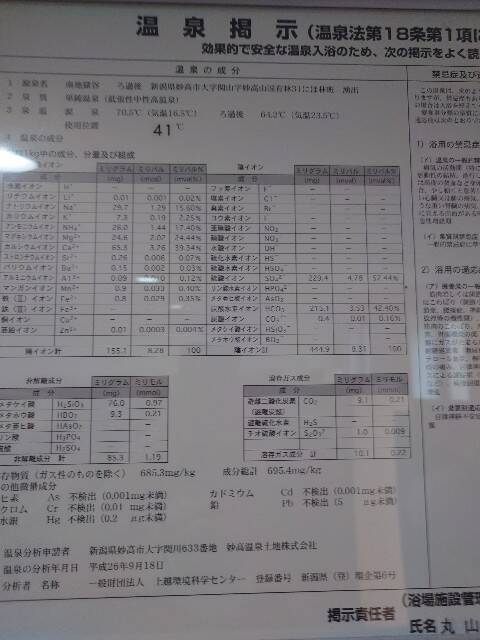 温泉掲示(温泉法第18条第1項に
効果的で安全な温泉入浴のため、次の掲示をよく読
温泉の成分
1 源泉名 南地獄谷 ろ過後 新潟県妙高市大字関山字妙高山国有林31にほ林班 湧出
2 泉質 単純温泉(低張性中性高温泉)
3 泉温 源泉 70.5℃(気温16.3℃) ろ過後 64.2℃(気温23.5℃)
使用位置 41℃
4 温泉の成分
1kg中の成分、分量及び組成
陽イオン 陰イオン
成分 ミリグラム(mg) ミリバル(mval) ミリバル%(mval%) 成分 ミリグラム(mg) ミリバル(mval) ミリバル%(mval%)
水素イオン H⁺ − − − フッ素イオン F⁻ − − −
リチウムイオン Li⁺ 0.01 0.001 0.02% 塩素イオン Cl⁻ − − −
ナトリウムイオン Na⁺ 29.7 1.29 15.60% 臭素イオン Br⁻ − − −
カリウムイオン K⁺ 7.3 0.19 2.25% ヨウ素イオン I⁻ − − −
アンモニウムイオン NH₄⁺ 26.0 1.44 17.40% 亜硝酸イオン NO₂⁻ − − −
マグネシウムイオン Mg²⁺ 24.6 2.02 24.44% 硝酸イオン NO₃⁻ − − −
カルシウムイオン Ca²⁺ 65.3 3.26 39.34% 水酸イオン OH⁻ − − −
ストロンチウムイオン Sr²⁺ 0.26 0.006 0.07% 硫化水素イオン HS⁻ − − −
バリウムイオン Ba²⁺ 0.15 0.002 0.03% 硫化イオン S²⁻ − − −
アルミニウムイオン Al³⁺ 0.09 0.010 0.12% 硫酸イオン SO₄²⁻ 229.4 4.78 57.44%
マンガンイオン Mn²⁺ 0.9 0.033 0.40% リン酸水素イオン HPO₄²⁻ − − −
鉄(Ⅱ)イオン Fe²⁺ 0.8 0.029 0.35% メタ亜ヒ酸イオン AsO₂⁻ − − −
鉄(Ⅲ)イオン Fe³⁺ − − − 炭酸水素イオン HCO₃⁻ 215.1 3.53 42.40%
銅イオン Cu²⁺ − − − 炭酸イオン CO₃²⁻ 0.4 0.01 0.16%
亜鉛イオン Zn²⁺ 0.01 0.0003 0.004% メタケイ酸イオン HSiO₃⁻ − − −
メタホウ酸イオン BO₂⁻ − − −
陽イオン計 155.1 8.28 100 陰イオン計 444.9 8.31 100
非解離成分 溶存ガス成分
成分 ミリグラム(mg) ミリモル(mmol) 成分 ミリグラム(mg) ミリモル(mmol)
メタケイ酸 H₂SiO₃ 76.0 0.97 遊離二酸化炭素(遊離炭酸) CO₂ 9.1 0.21
メタホウ酸 HBO₂ 9.3 0.21
メタ亜ヒ酸 HAsO₂ − − 遊離硫化水素 H₂S − −
リン酸 H₃PO₄ − − チオ硫酸イオン S₂O₃²⁻ 1.0 0.009
硫酸 H₂SO₄ − −
非解離成分計 85.3 1.19 溶存ガス成分計 10.1 0.22
存物質(ガス性のものを除く) 685.3mg/kg 成分総計 695.4mg/kg
の他微量成分
ヒ素 As 不検出(0.001mg未満) カドミウム Cd 不検出(0.001mg未満)
クロム Cr 不検出(0.01mg未満) 鉛 Pb 不検出(5 μg未満)
水銀 Hg 不検出(0.2 μg未満)
温泉分析申請者 新潟県妙高市大字関川633番地 妙高温泉土地株式会社
温泉の分析年月日 平成26年9月18日
分析者 名称 一般財団法人 上越環境科学センター 登録番号 新潟県(登)環企第6号
禁忌症及び
1) 浴用の禁忌症
2) 浴用の適応
(浴場施設管理
掲示責任者
氏名 丸山